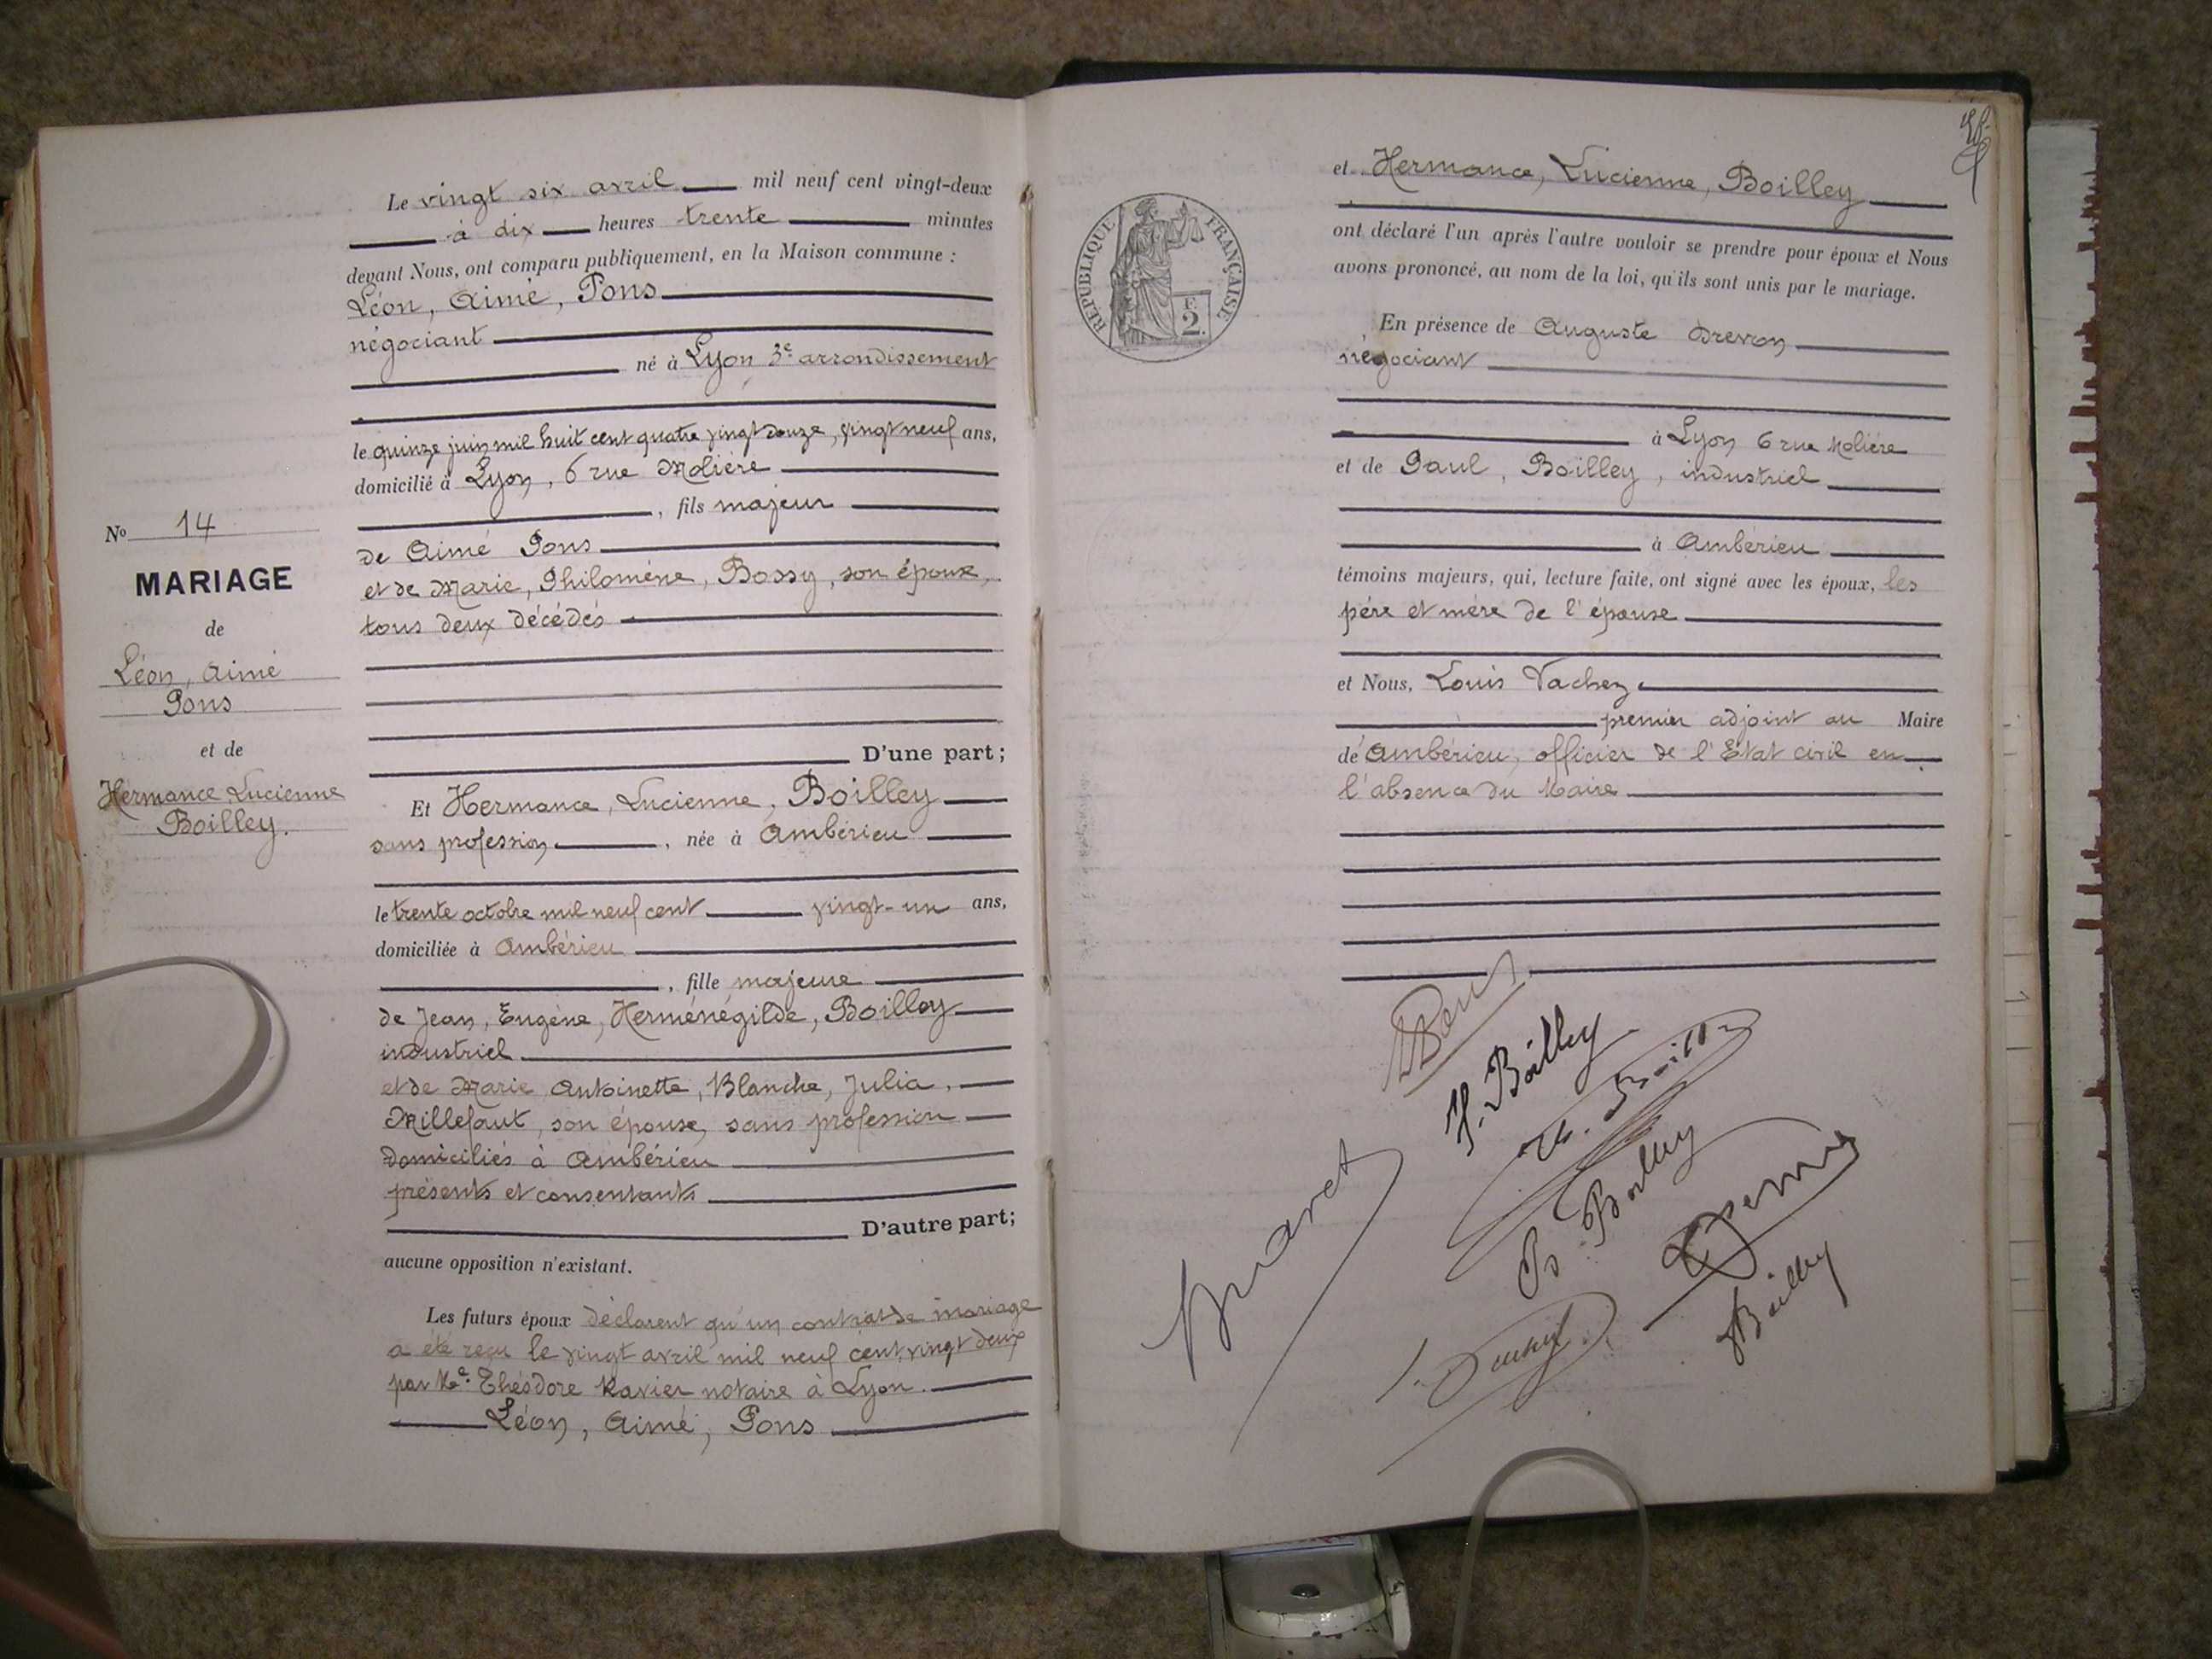 Le vingt six avril mil neuf cent vingt-deux
à dix heures trente minutes
devant Nous, ont comparu publiquement, en la Maison commune :
Léon, Aimé, Pons
négociant
né à Lyon 3e arrondissement
le quinze juin mil huit cent quatre vingt douze, vingt neuf ans,
domicilié à Lyon, 6 rue Molière
, fils majeur
de Aimé Pons
et de Marie, Philomène, Bossy, son épouse,
tous deux décédés
D'une part ;
No 14
MARIAGE
de
Léon, Aimé
Pons
et de
Hermance Lucienne
Boilley.
Et Hermance, Lucienne, Boilley
sans profession, née à Ambérieu
le trente octobre mil neuf cent vingt-un ans,
domiciliée à Ambérieu
, fille majeure
de Jean, Eugène, Herménégilde, Boilley
industriel
et de Marie Antoinette, Blanche, Julia,
Millefaut, son épouse, sans profession
domiciliés à Ambérieu
présents et consentants
D'autre part ;
aucune opposition n'existant.
Les futurs époux déclarent qu'un contrat de mariage
a été reçu le vingt avril mil neuf cent vingt deux
par Me Théodore Ravier notaire à Lyon.
Léon, Aimé, Pons
RÉPUBLIQUE FRANÇAISE
F.
2.
et Hermance, Lucienne, Boilley
ont déclaré l'un après l'autre vouloir se prendre pour époux et Nous
avons prononcé, au nom de la loi, qu'ils sont unis par le mariage.
En présence de Auguste Drevon
négociant
à Lyon 6 rue Molière
et de Paul, Boilley, industriel
à Ambérieu
témoins majeurs, qui, lecture faite, ont signé avec les époux, les
père et mère de l'épouse
et Nous, Louis Vachez
premier adjoint au Maire
de Ambérieu, officier de l'Etat civil en
l'absence du Maire
Pons
H. Boilley
B. Boilley
Boilley